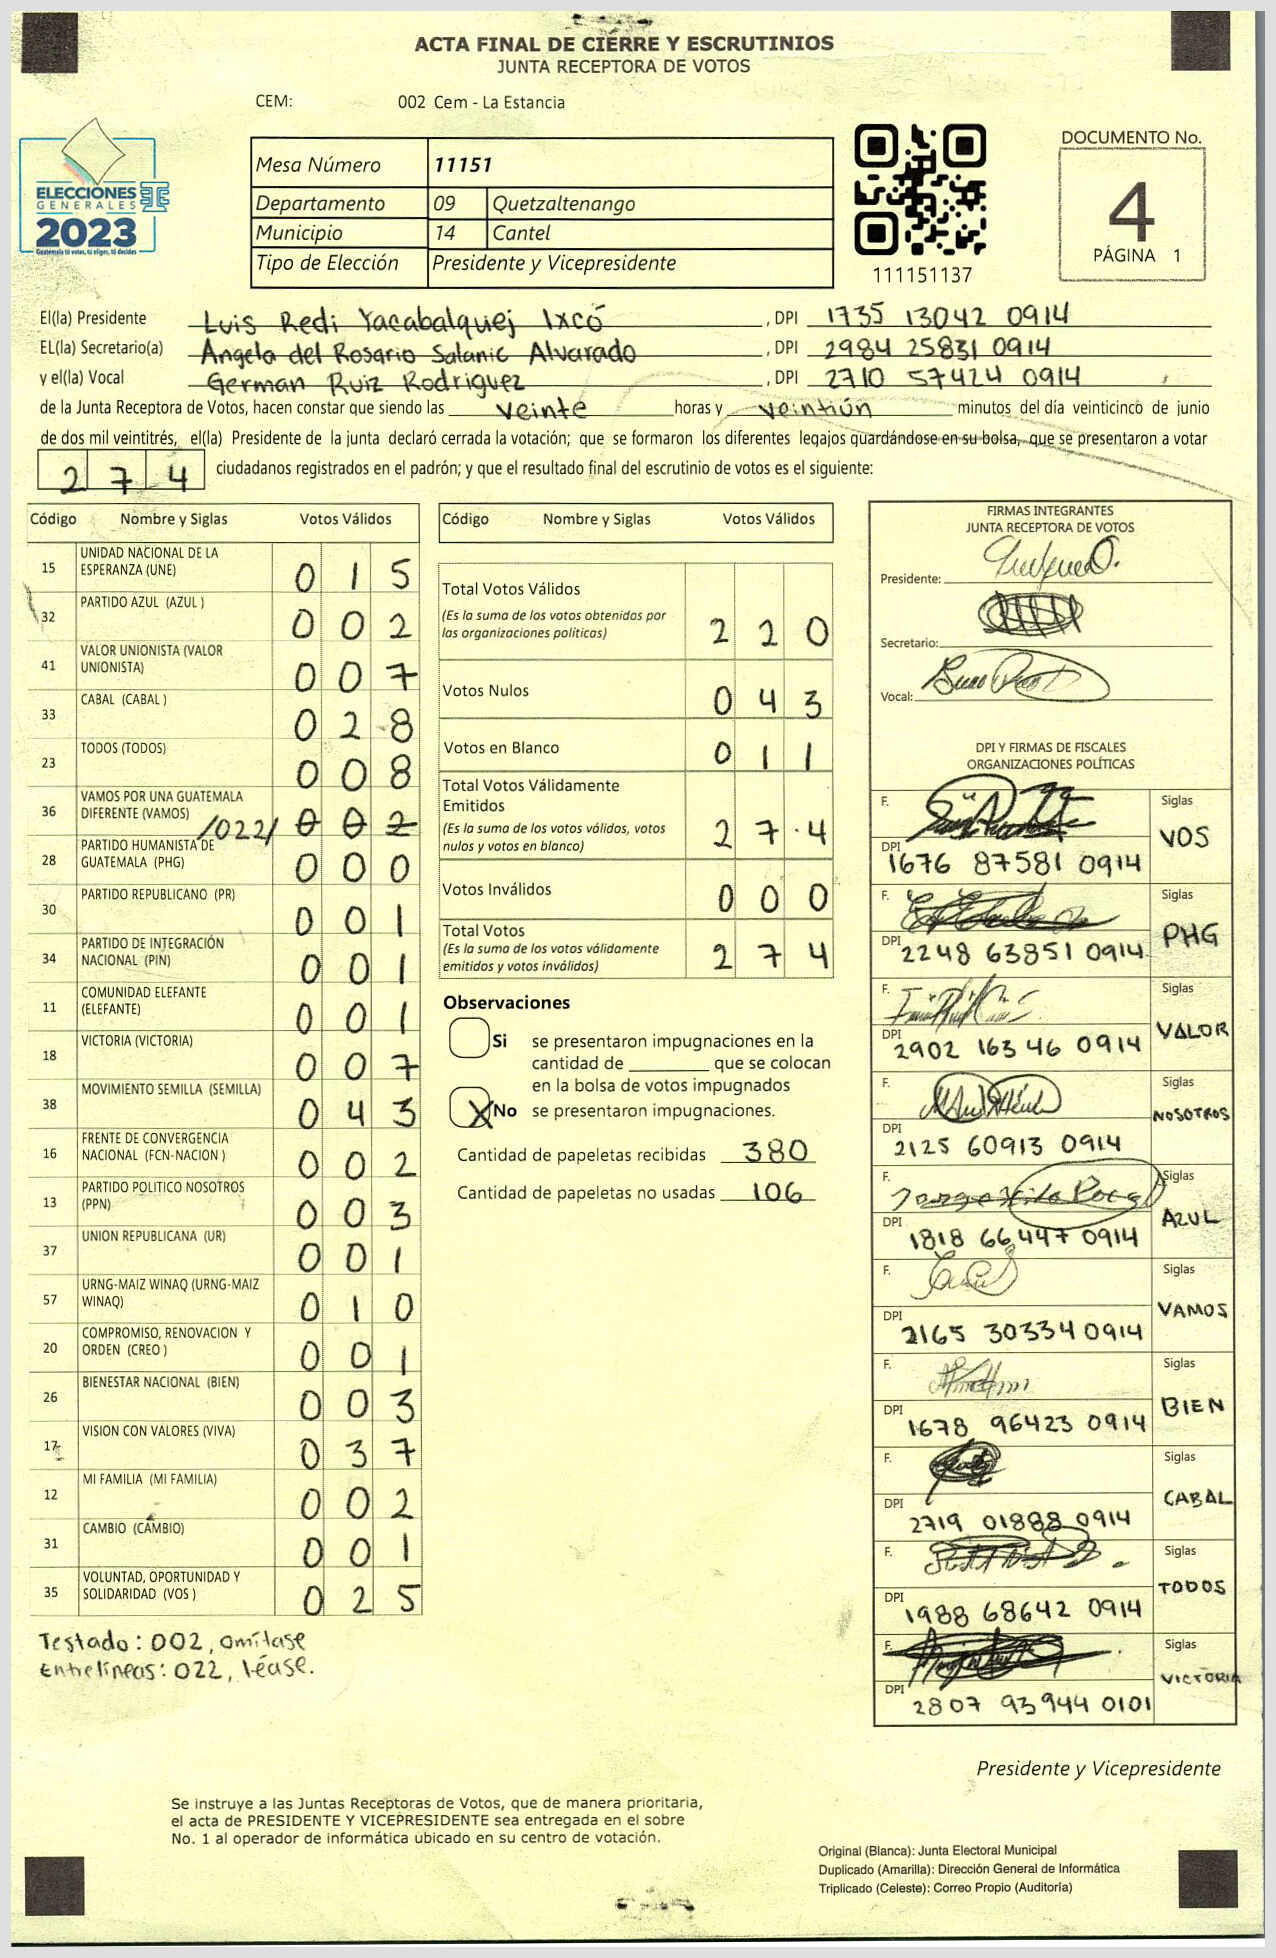 ACTA FINAL DE CIERRE Y ESCRUTINIOS
JUNTA RECEPTORA DE VOTOS
CEM: 002 Cem - La Estancia
ELECCIONES
GENERALES
2023
Guatemala tú votas, tú eliges, tú decides
Mesa Número 11151
Departamento 09 Quetzaltenango
Municipio 14 Cantel
Tipo de Elección Presidente y Vicepresidente
111151137
DOCUMENTO No.
4
PÁGINA 1
El(la) Presidente Luis Redi Yacabalquej Ixcó, DPI 1735 13042 0914
EL(la) Secretario(a) Angela del Rosario Salanic Alvarado, DPI 2984 25831 0914
y el(la) Vocal German Ruiz Rodriguez, DPI 2710 57424 0914
de la Junta Receptora de Votos, hacen constar que siendo las veinte horas y veintiún minutos del día veinticinco de junio
de dos mil veintitrés, el(la) Presidente de la junta declaró cerrada la votación; que se formaron los diferentes legajos guardándose en su bolsa, que se presentaron a votar
274 ciudadanos registrados en el padrón; y que el resultado final del escrutinio de votos es el siguiente:
Código Nombre y Siglas Votos Válidos
15 UNIDAD NACIONAL DE LA ESPERANZA (UNE) 0 1 5
32 PARTIDO AZUL (AZUL ) 0 0 2
41 VALOR UNIONISTA (VALOR UNIONISTA) 0 0 7
33 CABAL (CABAL ) 0 2 8
23 TODOS (TODOS) 0 0 8
36 VAMOS POR UNA GUATEMALA DIFERENTE (VAMOS) /022/ 0 0 2
28 PARTIDO HUMANISTA DE GUATEMALA (PHG) 0 0 0
30 PARTIDO REPUBLICANO (PR) 0 0 1
34 PARTIDO DE INTEGRACIÓN NACIONAL (PIN) 0 0 1
11 COMUNIDAD ELEFANTE (ELEFANTE) 0 0 1
18 VICTORIA (VICTORIA) 0 0 7
38 MOVIMIENTO SEMILLA (SEMILLA) 0 4 3
16 FRENTE DE CONVERGENCIA NACIONAL (FCN-NACION ) 0 0 2
13 PARTIDO POLITICO NOSOTROS (PPN) 0 0 3
37 UNION REPUBLICANA (UR) 0 0 1
57 URNG-MAIZ WINAQ (URNG-MAIZ WINAQ) 0 1 0
20 COMPROMISO, RENOVACION Y ORDEN (CREO ) 0 0 1
26 BIENESTAR NACIONAL (BIEN) 0 0 3
17 VISION CON VALORES (VIVA) 0 3 7
12 MI FAMILIA (MI FAMILIA) 0 0 2
31 CAMBIO (CAMBIO) 0 0 1
35 VOLUNTAD, OPORTUNIDAD Y SOLIDARIDAD (VOS ) 0 2 5
Testado: 002, omítase
Entrelíneas: 022, léase.
Código Nombre y Siglas Votos Válidos
Total Votos Válidos
(Es la suma de los votos obtenidos por
las organizaciones políticas) 2 2 0
Votos Nulos 0 4 3
Votos en Blanco 0 1 1
Total Votos Válidamente
Emitidos
(Es la suma de los votos válidos, votos
nulos y votos en blanco) 2 7 4
Votos Inválidos 0 0 0
Total Votos
(Es la suma de los votos válidamente
emitidos y votos inválidos) 2 7 4
Observaciones
Si se presentaron impugnaciones en la
cantidad de ________ que se colocan
en la bolsa de votos impugnados
X No se presentaron impugnaciones.
Cantidad de papeletas recibidas 380
Cantidad de papeletas no usadas 106
FIRMAS INTEGRANTES
JUNTA RECEPTORA DE VOTOS
Presidente:
Secretario:
Vocal:
DPI Y FIRMAS DE FISCALES
ORGANIZACIONES POLÍTICAS
F. Siglas VOS
DPI 1676 87581 0914
F. Siglas PHG
DPI 2248 63851 0914
F. Siglas VALOR
DPI 2902 16346 0914
F. Siglas NOSOTROS
DPI 2125 60913 0914
F. Siglas AZUL
DPI 1818 66447 0914
F. Siglas VAMOS
DPI 2165 30334 0914
F. Siglas BIEN
DPI 1678 96423 0914
F. Siglas CABAL
DPI 2719 01888 0914
F. Siglas TODOS
DPI 1988 68642 0914
F. Siglas VICTORIA
DPI 2807 93944 0101
Presidente y Vicepresidente
Se instruye a las Juntas Receptoras de Votos, que de manera prioritaria,
el acta de PRESIDENTE Y VICEPRESIDENTE sea entregada en el sobre
No. 1 al operador de informática ubicado en su centro de votación.
Original (Blanca): Junta Electoral Municipal
Duplicado (Amarilla): Dirección General de Informática
Triplicado (Celeste): Correo Propio (Auditoría)